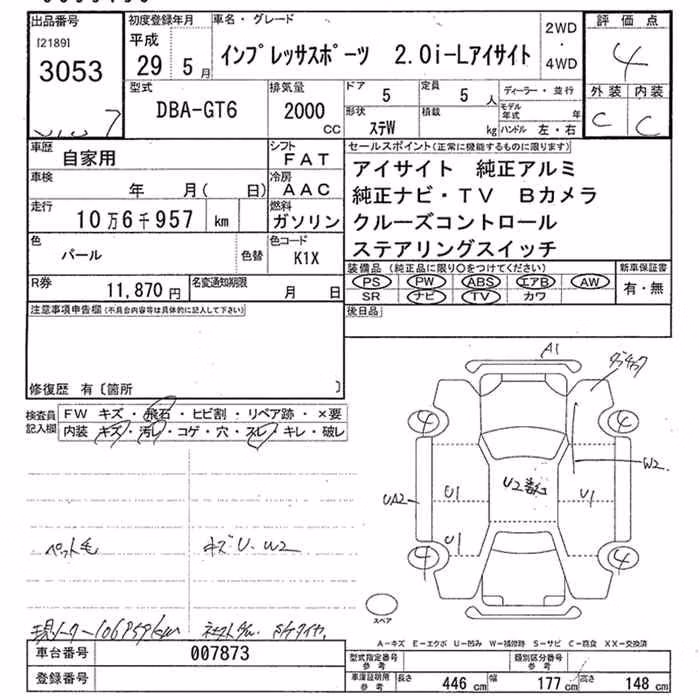 出品番号 初度登録年月 車名・グレード 2WD・4WD 評価点
[2189] 平成 インプレッサスポーツ 2.0i-Lアイサイト 4
3053 29年 5月
型式 排気量 ドア 5 定員 5人 ディーラー・並行 外装 内装
DBA-GT6 2000CC 形状 ステW 積載 kg モデル年式 年 C C
ハンドル 左・右
車歴 自家用 シフト FAT セールスポイント(正常に機能するものに限ります)
車検 年 月( 日) 冷房 AAC アイサイト 純正アルミ
走行 10万6千957 km 燃料 ガソリン 純正ナビ・TV Bカメラ
クルーズコントロール
色 パール 色替 色コード K1X ステアリングスイッチ
R券 11,870円 名変通知期限 月 日 装備品(純正品に限り○をつけてください) 新車保証書
PS PW ABS エアB AW 有・無
SR ナビ TV カワ
注意事項申告欄(不具合内容等は具体的に記入して下さい) 後日品
修復歴 有〔箇所 〕
検査員記入欄 FW キズ・飛石・ヒビ割・リペア跡・×要
内装 キズ・汚レ・コゲ・穴・スレ・キレ・破レ
A1
4 4
W2
U2
UA2 U1 U1
U1
ペット毛 キズ U・W2
4 4
スペア
A-キズ E-エクボ U-凹み W-補修跡 S-サビ C-腐食 XX-交換済
車台番号 007873 型式指定番号 参考 類別区分番号 参考
登録番号 車庫証明用 参考 長さ 446cm 幅 177cm 高さ 148cm